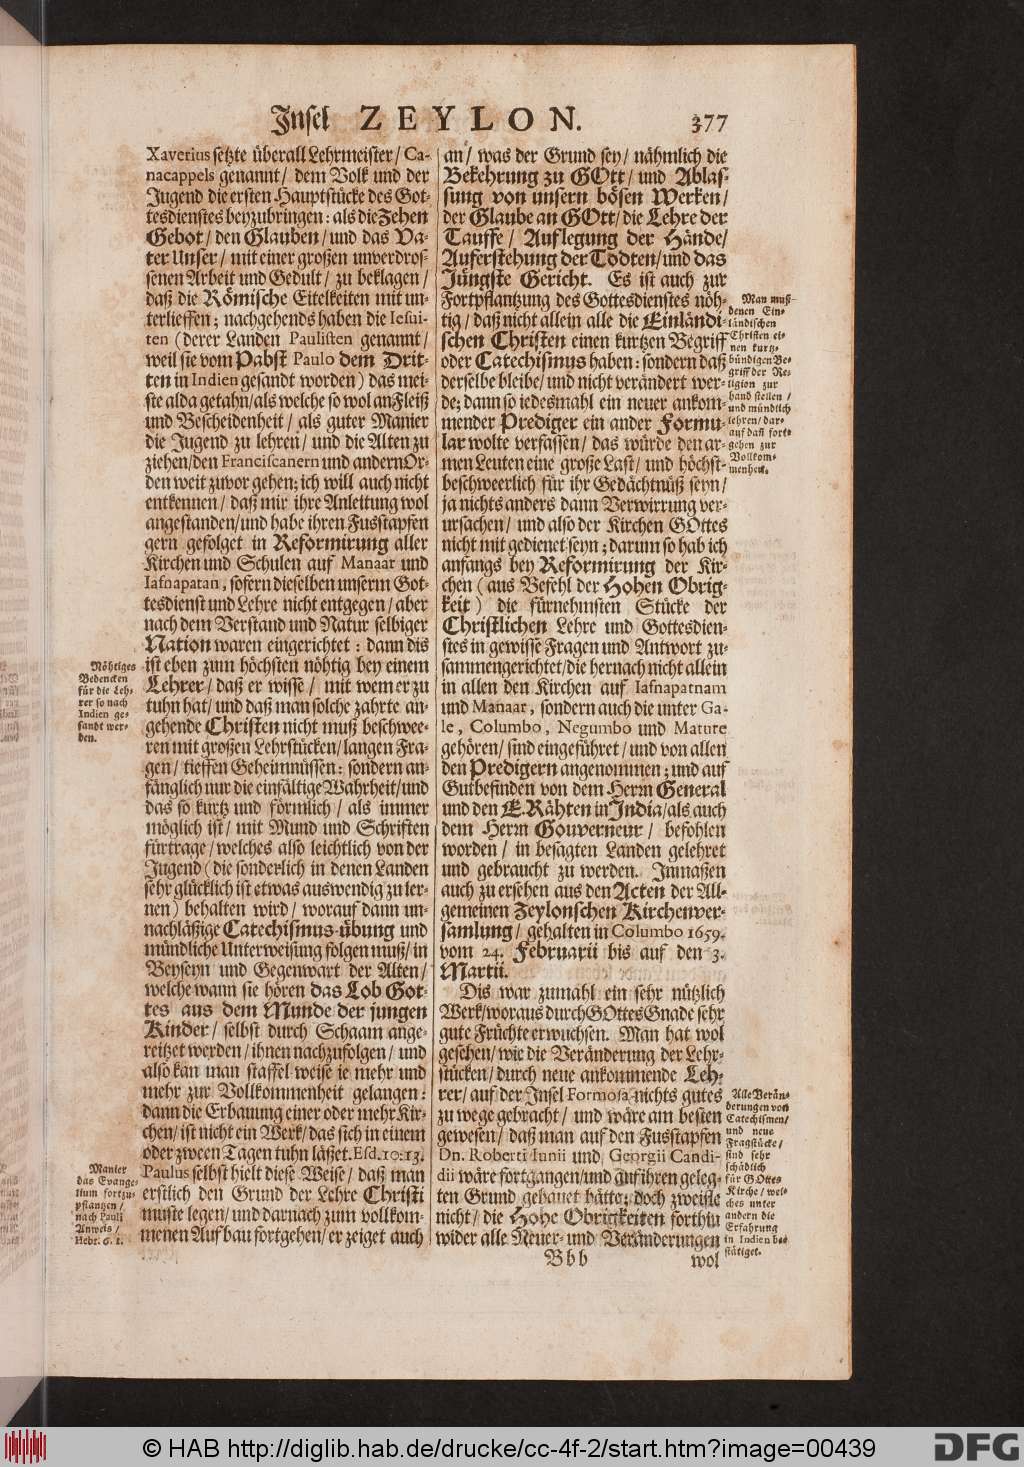 Insel ZEYLON. 377
Xaverius setzte überall Lehrmeister/ Ca-
nacappels genannt/ dem Volk und der
Jugend die ersten Hauptstücke des Got-
tesdienstes beyzubringen: als die Zehen
Gebot/ den Glauben/ und das Va-
ter Unser/ mit einer großen unverdros-
senen Arbeit und Gedult/ zu beklagen/
daß die Römische Eitelkeiten mit un-
terlieffen; nachgehends haben die Iesui-
ten (derer Landen Paulisten genannt/
weil sie vom Pabst Paulo dem Drit-
ten in Indien gesandt worden) das mei-
ste alda getahn/ als welche so wol an Fleiß
und Bescheidenheit/ als guter Manier
die Jugend zu lehren/ und die Alten zu
ziehen/ den Franciscanern und andern Or-
den weit zuvor gehen; ich will auch nicht
entkennen/ daß mir ihre Anleitung wol
angestanden/ und habe ihren Fusstapfen
gern gefolget in Reformirung aller
Kirchen und Schulen auf Manaar und
Iafnapatan, sofern dieselben unserm Got-
tesdienst und Lehre nicht entgegen/ aber
nach dem Verstand und Natur selbiger
Nation waren eingerichtet: dann dis
ist eben zum höchsten nöhtig bey einem
Lehrer/ daß er wisse/ mit wem er zu
tuhn hat/ und daß man solche zahrte an-
gehende Christen nicht muß beschwee-
ren mit großen Lehrstücken/ langen Fra-
gen/ tieffen Geheimnüssen: sondern an-
fänglich nur die einfältige Wahrheit/ und
das so kurtz und förmlich/ als immer
möglich ist/ mit Mund und Schriften
fürtrage/ welches also leichtlich von der
Jugend (die sonderlich in denen Landen
sehr glücklich ist etwas auswendig zu ler-
nen) behalten wird/ worauf dann un-
nachläßige Catechismus-übung und
mündliche Unterweisung folgen muß/ in
Beyseyn und Gegenwart der Alten/
welche wann sie hören das Lob Got-
tes aus dem Munde der jungen
Kinder/ selbst durch Schaam ange-
reitzet werden/ ihnen nachzufolgen/ und
also kan man staffel weise ie mehr und
mehr zur Vollkommenheit gelangen:
dann die Erbauung einer oder mehr Kir-
chen/ ist nicht ein Werk/ das sich in einem
oder zween Tagen tuhn läßet. Esd. 10:13.
Paulus selbst hielt diese Weise/ daß man
erstlich den Grund der Lehre Christi
muste legen/ und darnach zum vollkom-
menen Aufbau fortgehen/ er zeiget auch
Nöhtiges
Bedencken
für die Leh-
rer so nach
Indien ge-
sandt wer-
den.
Manier
das Evange-
lium fortzu-
pflantzen/
nach Pauli
Anweis/
Hebr. 6. 1.
an/ was der Grund sey/ nähmlich die
Bekehrung zu GOtt/ und Ablas-
sung von unsern bösen Werken/
der Glaube an GOtt/ die Lehre der
Tauffe/ Auflegung der Hände/
Auferstehung der Todten/ und das
Jüngste Gericht. Es ist auch zur
Fortpflantzung des Gottesdienstes nöh-
tig/ daß nicht allein alle die Einländi-
schen Christen einen kurtzen Begriff
oder Catechismus haben: sondern daß
derselbe bleibe/ und nicht verändert wer-
de; dann so iedesmahl ein neuer ankom-
mender Prediger ein ander Formu-
lar wolte verfassen/ das würde den ar-
men Leuten eine große Last/ und höchst-
beschweerlich für ihr Gedächtnüß seyn/
ja nichts anders dann Verwirrung ver-
ursachen/ und also der Kirchen GOttes
nicht mit gedienet seyn; darum so hab ich
anfangs bey Reformirung der Kir-
chen (aus Befehl der Hohen Obrig-
keit) die fürnehmsten Stücke der
Christlichen Lehre und Gottesdien-
stes in gewisse Fragen und Antwort zu-
sammengerichtet/ die hernach nicht allein
in allen den Kirchen auf Iafnapatnam
und Manaar, sondern auch die unter Ga-
le, Columbo, Negumbo und Mature
gehören/ sind eingeführet/ und von allen
den Predigern angenommen; und auf
Gutbefinden von dem Herrn General
und den E. Rähten in India/ als auch
dem Herrn Gouverneur/ befohlen
worden/ in besagten Landen gelehret
und gebraucht zu werden. Inmaßen
auch zu ersehen aus den Acten der All-
gemeinen Zeylonschen Kirchenver-
samlung/ gehalten in Columbo 1659.
vom 24. Februarii bis auf den 3.
Martii.
Dis war zumahl ein sehr nützlich
Werk/ woraus durch GOttes Gnade sehr
gute Früchte erwuchsen. Man hat wol
gesehen/ wie die Veränderung der Lehr-
stücken/ durch neue ankommende Leh-
rer/ auf der Insel Formosa nichts gutes
zu wege gebracht/ und wäre am besten
gewesen/ daß man auf den Fusstapfen
Dn. Roberti Iunii und Georgii Candi-
dii wäre fortgangen/ und auf ihren geleg-
ten Grund gebauet hätte; doch zweifle
nicht/ die Hohe Obrigkeiten forthin
wider alle Neuer- und Veränderungen
Man muß
denen Ein-
ländischen
Christen ei-
nen kurtz-
bündigen Be-
griff der Re-
ligion zur
hand stellen/
und mündlich
lehren/ dar-
auf dañ fort-
gehen zur
Vollkom-
menheit.
Alle Verän-
derungen von
Catechismen/
und neue
Fragstücke/
sind sehr
schädlich
für GOttes
Kirche/ wel-
ches unter
andern die
Erfahrung
in Indien be-
stätiget.
Bbb wol
© HAB http://diglib.hab.de/drucke/cc-4f-2/start.htm?image=00439
DFG